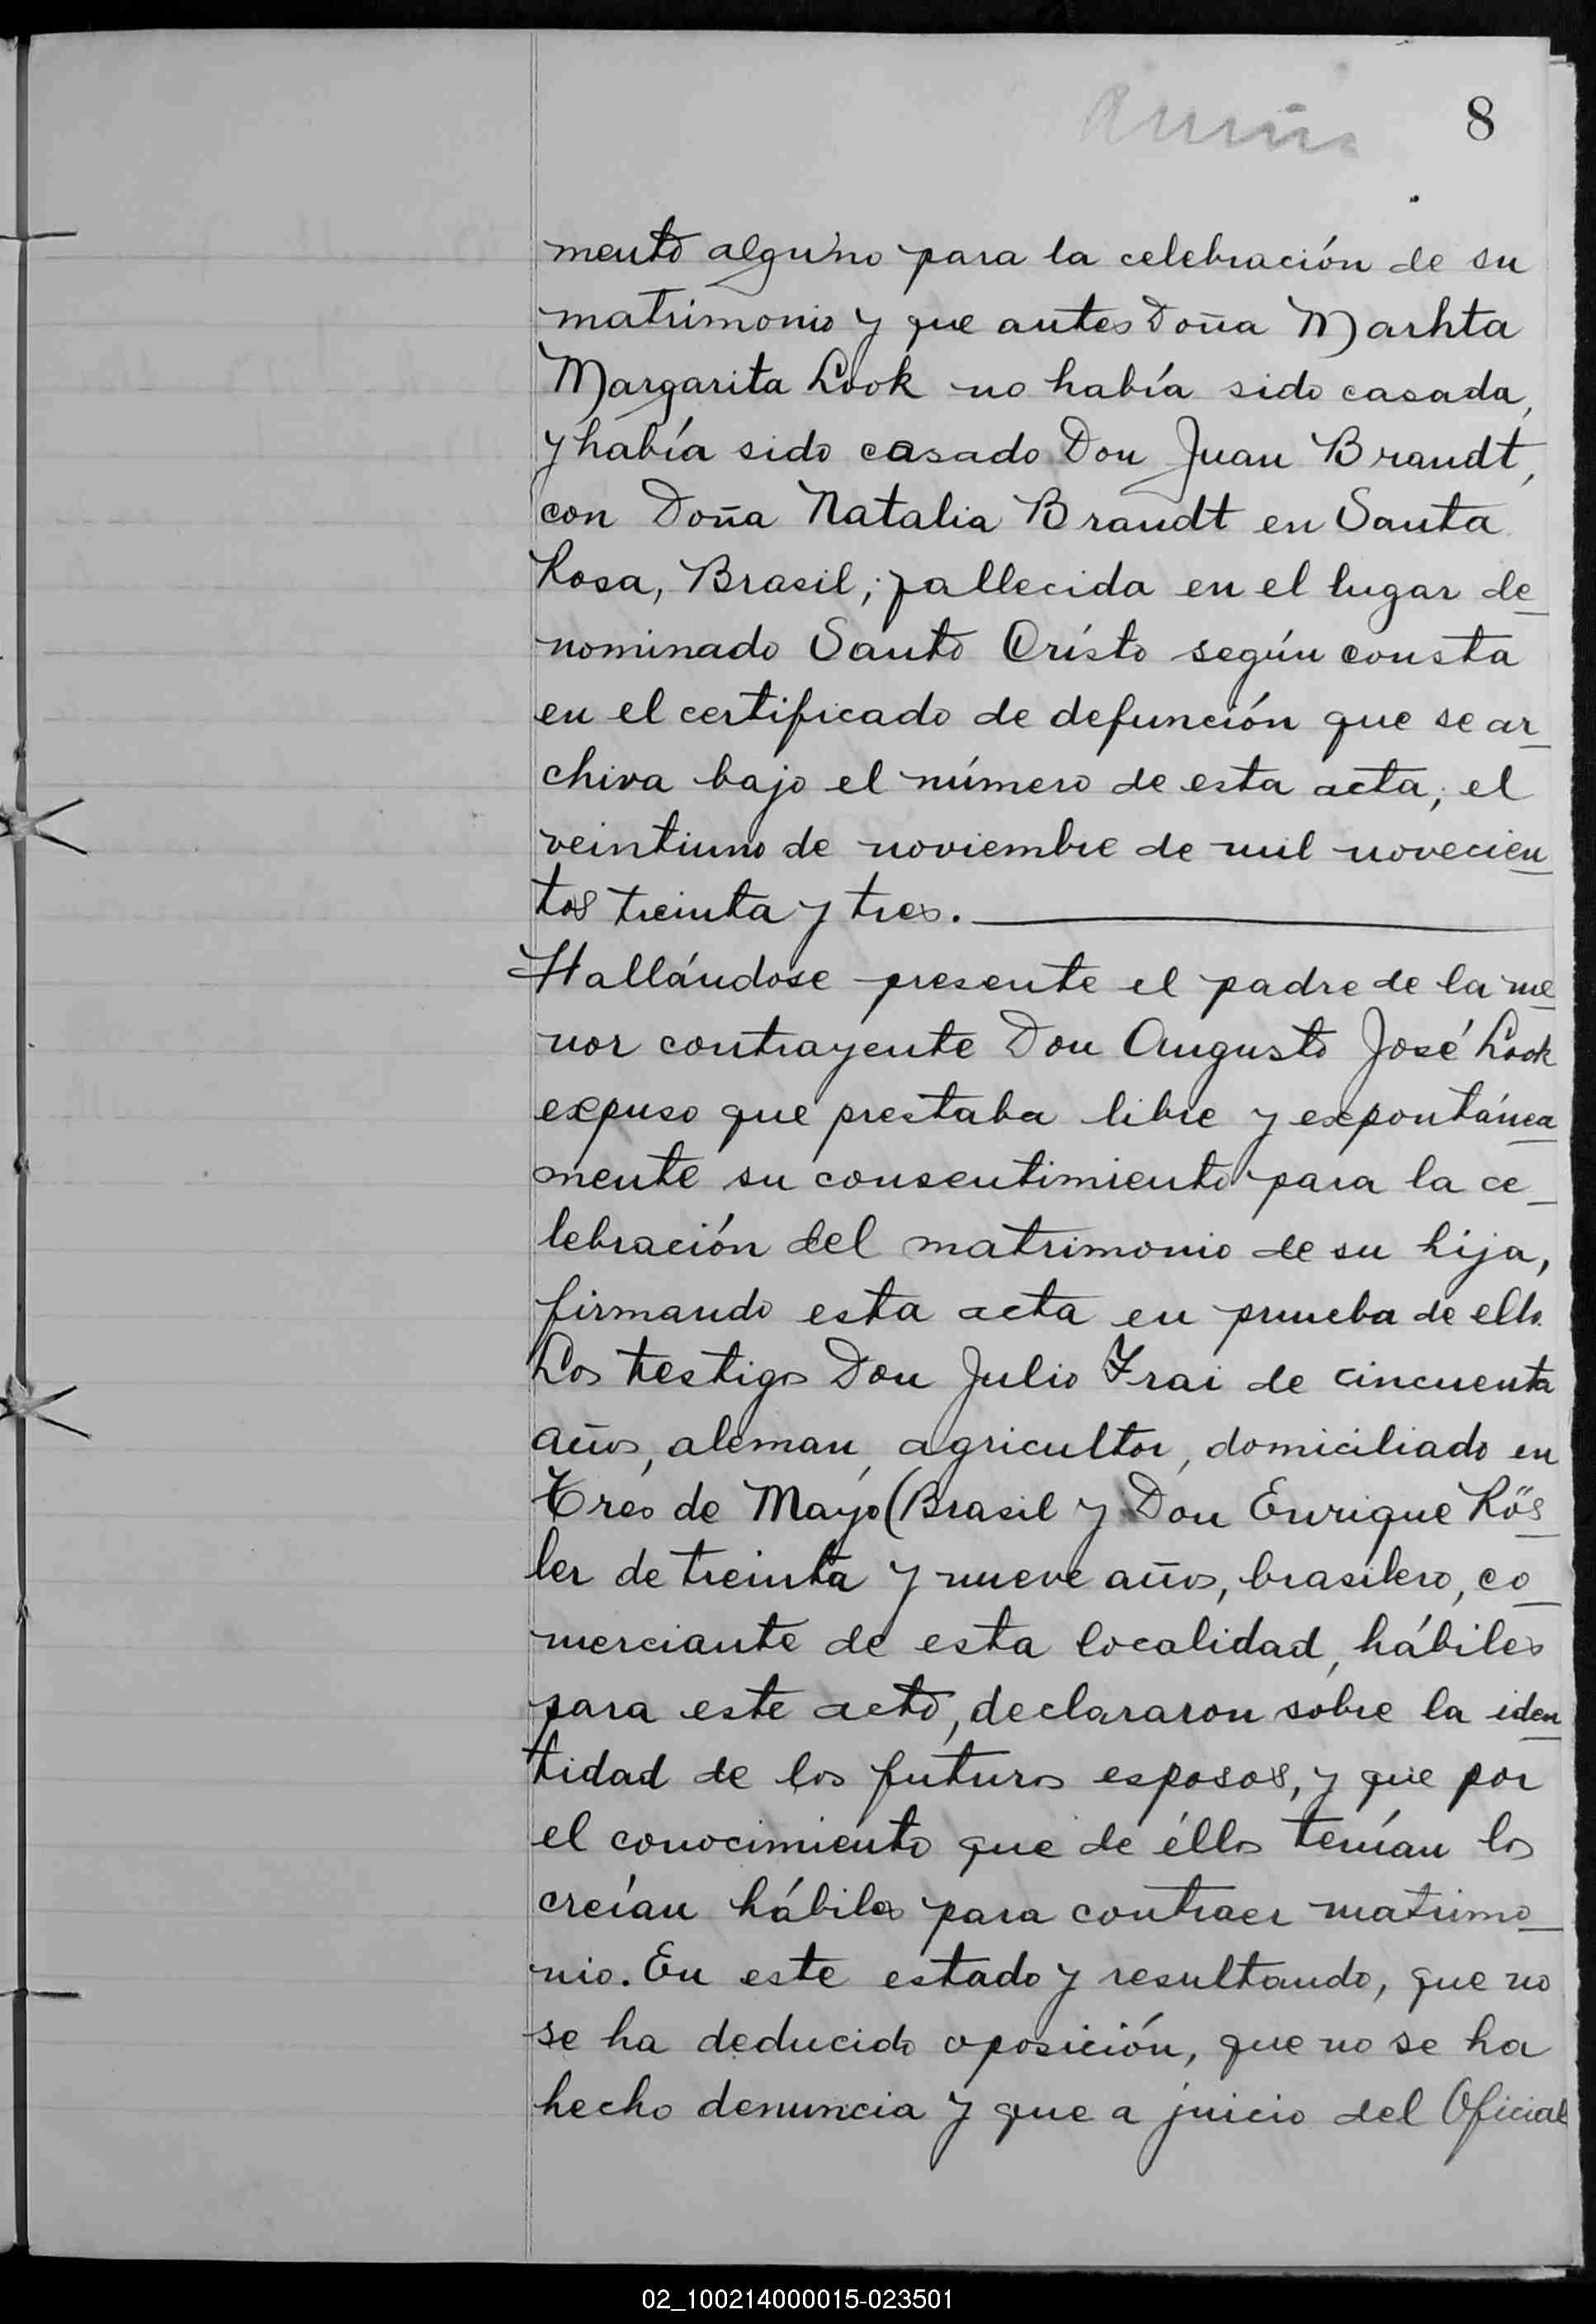 8
mento alguno para la celebración de su
matrimonio y que antes Doña Marhta
Margarita Look no había sido casada,
y había sido casado Don Juan Brandt,
con Doña Natalia Brandt en Santa
Rosa, Brasil; fallecida en el lugar de
nominado Santo Cristo según consta
en el certificado de defunción que se ar
chiva bajo el número de esta acta, el
veintiuno de noviembre de mil novecien
tos treinta y tres.
Hallándose presente el padre de la me
nor contrayente Don Augusto José Look
expuso que prestaba libre y expontánea
mente su consentimiento para la ce
lebración del matrimonio de su hija,
firmando esta acta en prueba de ello.
Los testigos Don Julio Frai de cincuenta
años, aleman, agricultor, domiciliado en
Tres de Mayo (Brasil y Don Enrique Rös
ler de treinta y nueve años, brasilero, co
merciante de esta localidad, hábiles
para este acto, declararon sobre la iden
tidad de los futuros esposos, y que por
el conocimiento que de éllos tenían los
creían hábiles para contraer matrimo
nio. En este estado y resultando, que no
se ha deducido oposición, que no se ha
hecho denuncia y que a juicio del Oficial
02_100214000015-023501